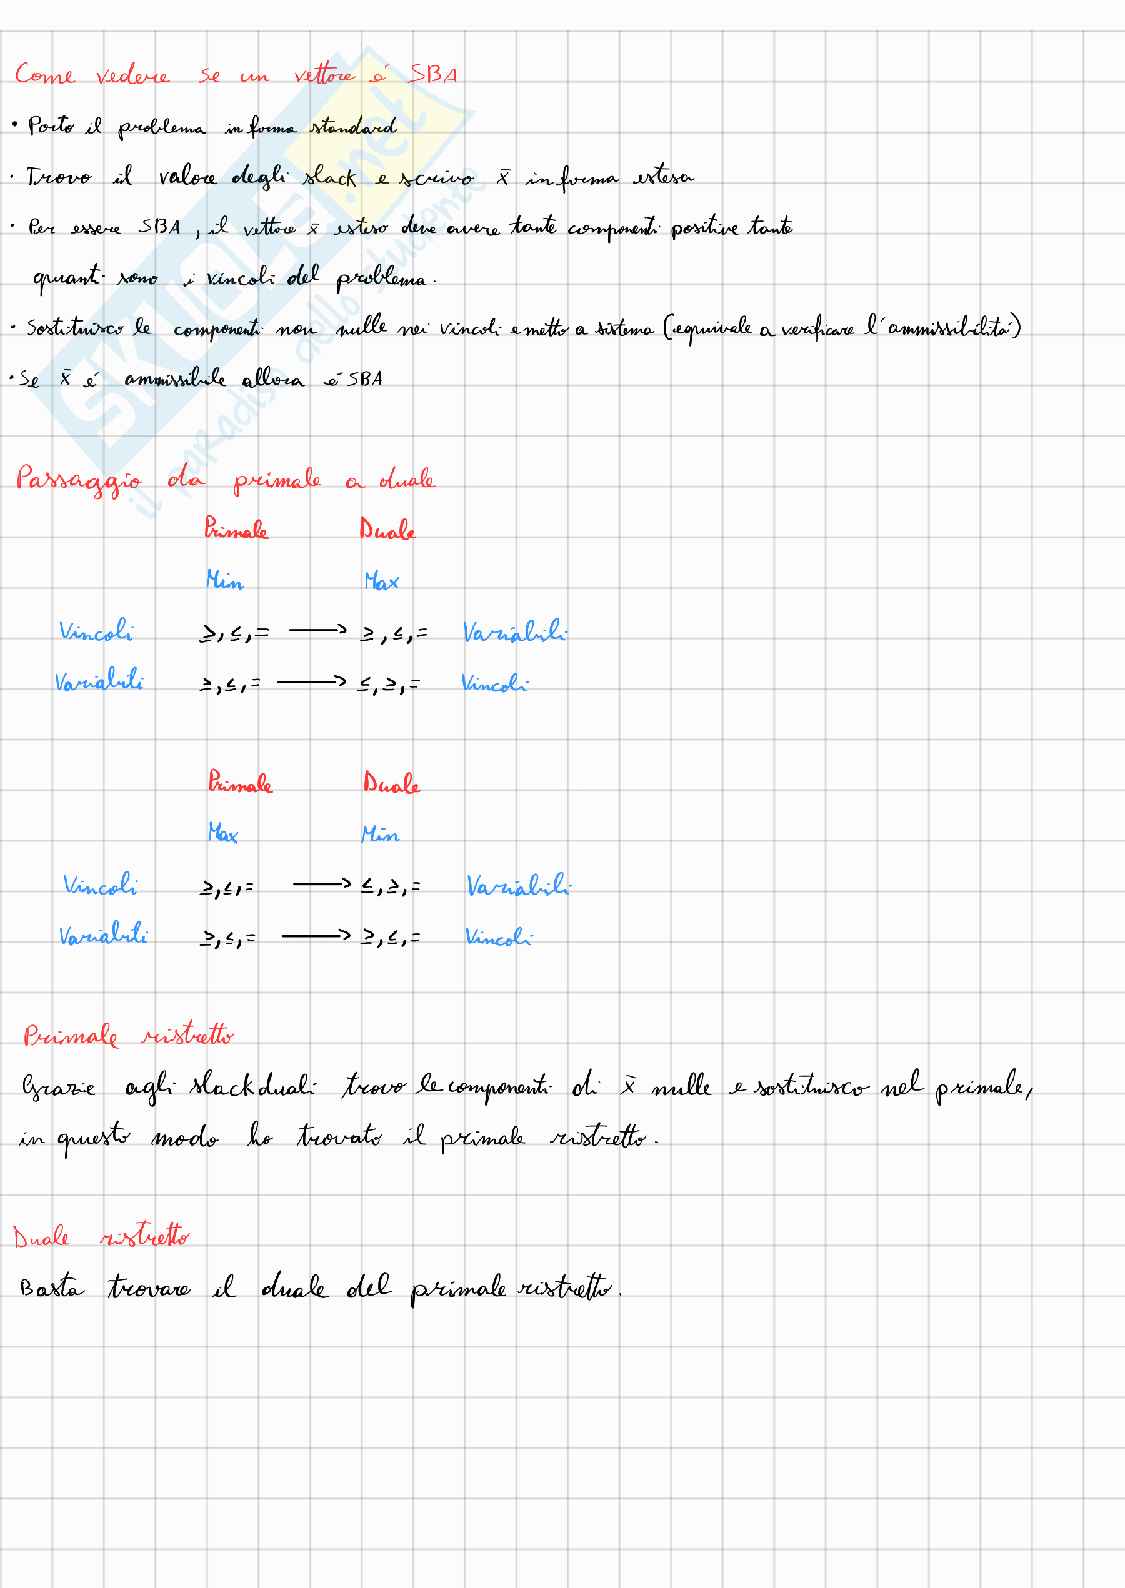 Come vedere se un vettore é SBA
• Porto il problema in forma standard
• Trovo il valore degli slack e scrivo x̄ in forma estesa
• Per essere SBA, il vettore x̄ esteso deve avere tante componenti positive tante
quanti sono i vincoli del problema.
• Sostituisco le componenti non nulle nei vincoli e metto a sistema (equivale a verificare l'ammissibilitá)
• Se x̄ é ammissibile allora é SBA
Passaggio da primale a duale
Primale Duale
Min Max
Vincoli ≥,≤,= → ≥,≤,= Variabili
Variabili ≥,≤,= → ≤,≥,= Vincoli
Primale Duale
Max Min
Vincoli ≥,≤,= → ≤,≥,= Variabili
Variabili ≥,≤,= → ≥,≤,= Vincoli
Primale ristretto
Grazie agli slack duali trovo le componenti di x̄ nulle e sostituisco nel primale,
in questo modo ho trovato il primale ristretto.
Duale ristretto
Basta trovare il duale del primale ristretto.
SKUOLA.net
il paradiso dello studente